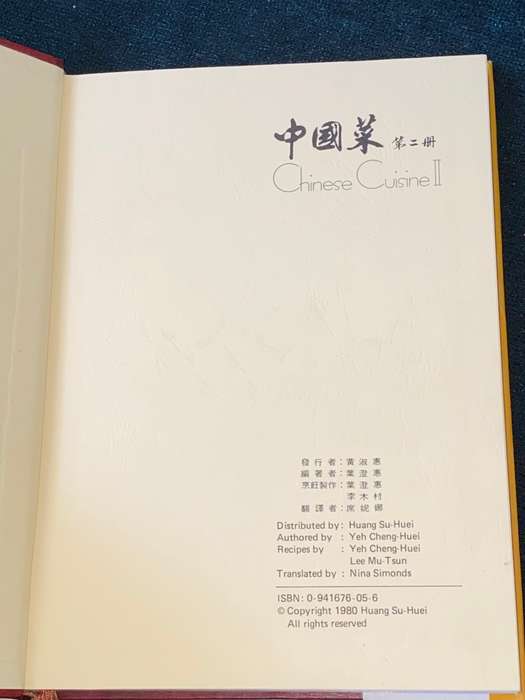 中國菜 第二冊
Chinese Cuisine II
發行者：黃淑惠
編著者：葉澄惠
烹飪製作：葉澄惠
李木村
翻譯者：席妮娜
Distributed by : Huang Su-Huei
Authored by : Yeh Cheng-Huei
Recipes by : Yeh Cheng-Huei
Lee Mu-Tsun
Translated by : Nina Simonds
ISBN: 0-941676-05-6
© Copyright 1980 Huang Su-Huei
All rights reserved